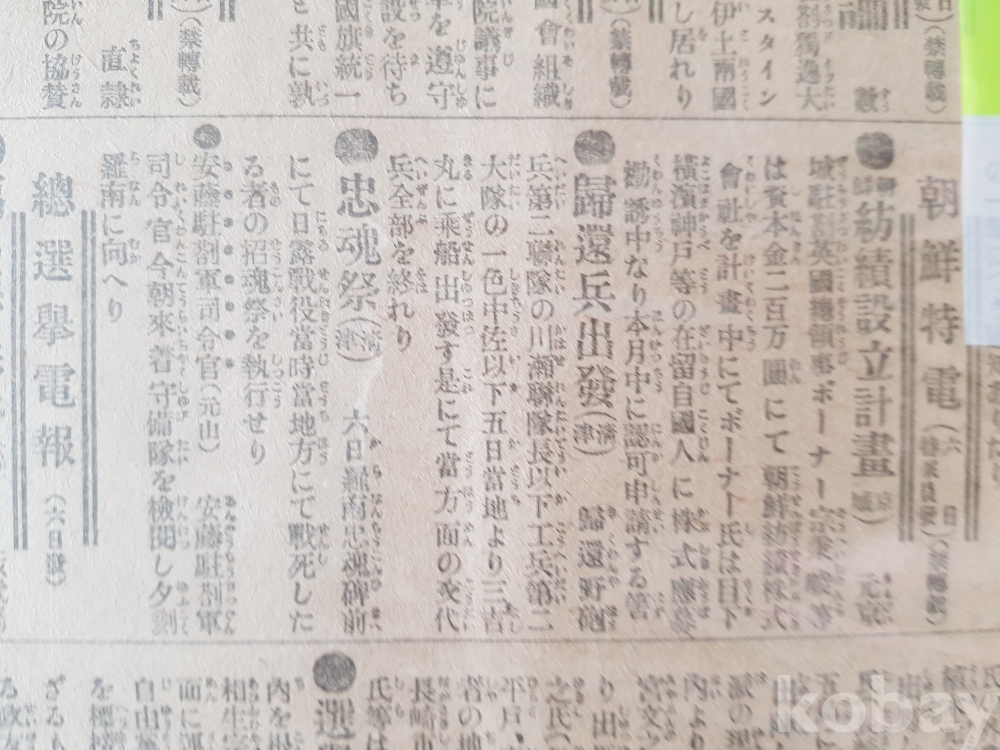 (禁轉載)
數
スタイン
伊土兩國
し居れり
(禁轉載)
國會組織
院議事に
を遵守
設を待ち
國旗統一
と共に孰
(禁轉載)
直隷
院の協賛
朝鮮特電
(六日
特派員發)(禁轉載)
紡績設立計畫(京城)元京
城駐在英國總領事ボーナー
は資本金二百万圓にて朝鮮紡績株式
會社を計畫中にてボーナー氏は目下
橫濱神戶等の在留自國人に株式應募
勸誘中なり本月中に認可申請する筈
●歸還兵出發(清津)歸還野砲
兵第二聯隊の川瀬聯隊長以下工兵第二
大隊の一色中佐以下五日當地より三吉
丸に乘船出發す是にて當方面の交代
兵全部を終れり
●忠魂祭(清津)六日羅南忠魂碑前
にて日露戰役當時當地方にて戰死した
る者の招魂祭を執行せり
●安藤駐剳軍司令官(元山)安藤駐剳軍
司令官今朝來着守備隊を檢閱し夕刻
羅南に向へり
總選擧電報
(六日發)
り出
之氏(
平戶、
者の地
長崎市
氏等は
●選
內を根
相生
面に運
自由
を標榜
ざるも
kobay